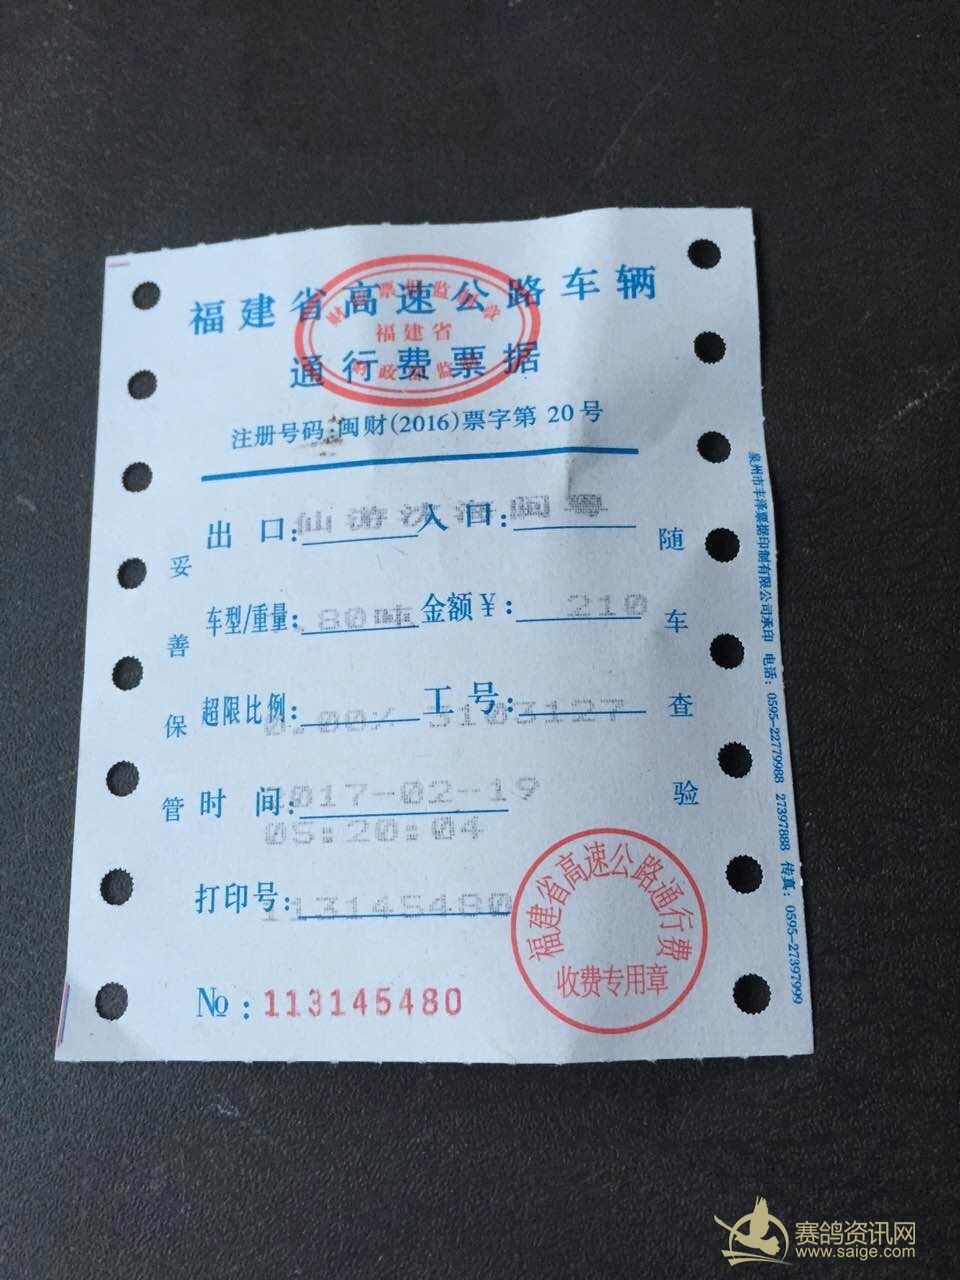 福建省高速公路车辆
通行费票据
福建省
注册号码:闽财(2016)票字第 20号
出 口: 仙游沙 入 口: 闽粤
车型/重量: .80吨 金额￥: 210
超限比例: 0.00% 工号: 3103127
时 间: 2017-02-19
05:20:04
打印号: 113145480
№: 113145480
妥善保管
随车查验
福建省高速公路通行费
收费专用章
泉州市丰泽票据印制有限公司承印 电话: 0595-22779988 27397888 传真: 0595-27397999
赛鸽资讯网
www.saige.com